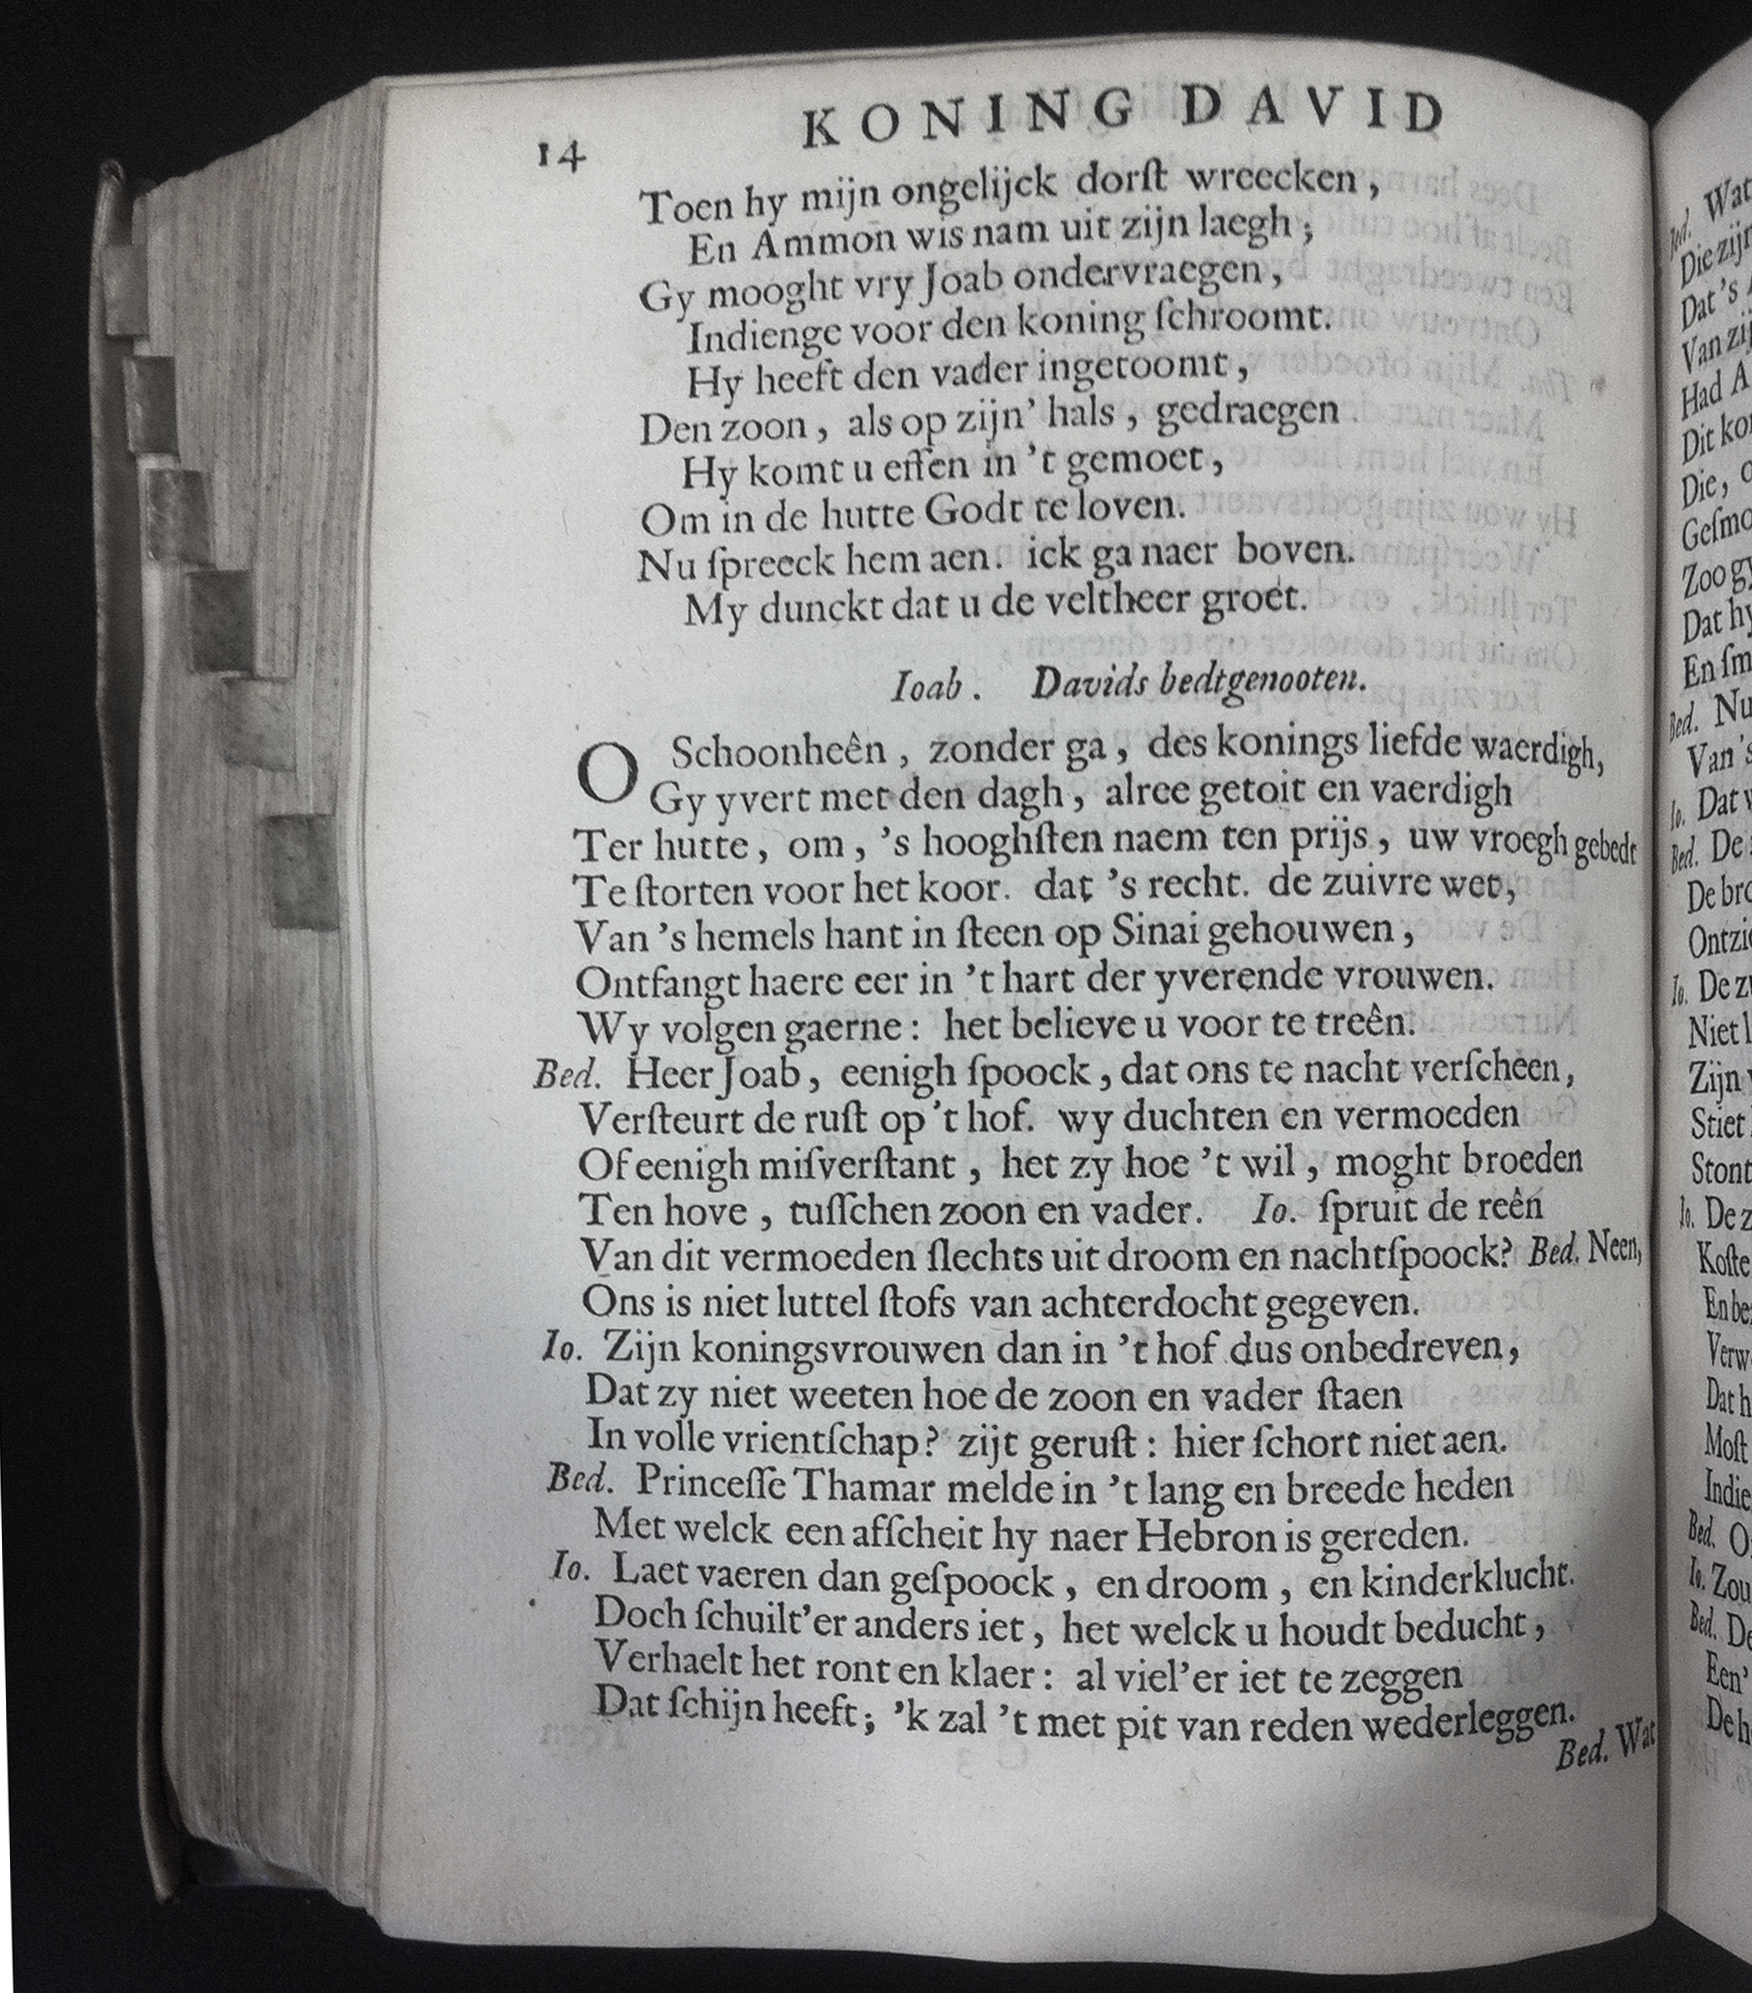 KONING DAVID
14
Toen hy mijn ongelijck dorſt wreecken,
En Ammon wis nam uit zijn laegh;
Gy mooght vry Joab ondervraegen,
Indienge voor den koning ſchroomt.
Hy heeft den vader ingetoomt,
Den zoon, als op zijn' hals, gedraegen
Hy komt u effen in 't gemoet,
Om in de hutte Godt te loven.
Nu ſpreeck hem aen. ick ga naer boven.
My dunckt dat u de veltheer groet.
Ioab. Davids bedtgenooten.
O Schoonheên, zonder ga, des konings liefde waerdigh,
Gy yvert met den dagh, alree getoit en vaerdigh
Ter hutte, om, 's hooghſten naem ten prijs, uw vroegh gebedt
Te ſtorten voor het koor. dat 's recht. de zuivre wet,
Van 's hemels hant in ſteen op Sinai gehouwen,
Ontfangt haere eer in 't hart der yverende vrouwen.
Wy volgen gaerne: het believe u voor te treên.
Bed. Heer Joab, eenigh ſpoock, dat ons te nacht verſcheen,
Verſteurt de ruſt op 't hof. wy duchten en vermoeden
Of eenigh miſverſtant, het zy hoe 't wil, moght broeden
Ten hove, tuſſchen zoon en vader. Io. ſpruit de reên
Van dit vermoeden ſlechts uit droom en nachtſpoock? Bed. Neen,
Ons is niet luttel ſtofs van achterdocht gegeven.
Io. Zijn koningsvrouwen dan in 't hof dus onbedreven,
Dat zy niet weeten hoe de zoon en vader ſtaen
In volle vrientſchap? zijt geruſt: hier ſchort niet aen.
Bed. Princeſſe Thamar melde in 't lang en breede heden
Met welck een afſcheit hy naer Hebron is gereden.
Io. Laet vaeren dan geſpoock, en droom, en kinderklucht.
Doch ſchuilt'er anders iet, het welck u houdt beducht,
Verhaelt het ront en klaer: al viel'er iet te zeggen
Dat ſchijn heeft; 'k zal 't met pit van reden wederleggen.
Bed. Wat
Bed. Wat
Die zijn
Dat 's
Van
Had
Dit
Die,
Zoo gy
Dat hy
En
Bed. Nu
Van 's
Io. Dat
Bed. De
De
Io. De
Niet
Zijn
Stiet
Stont
Io. De
Koſte
En
Dat
Moſt
Indie
Bed. O
Io. Zou
Bed. De
Een'
De